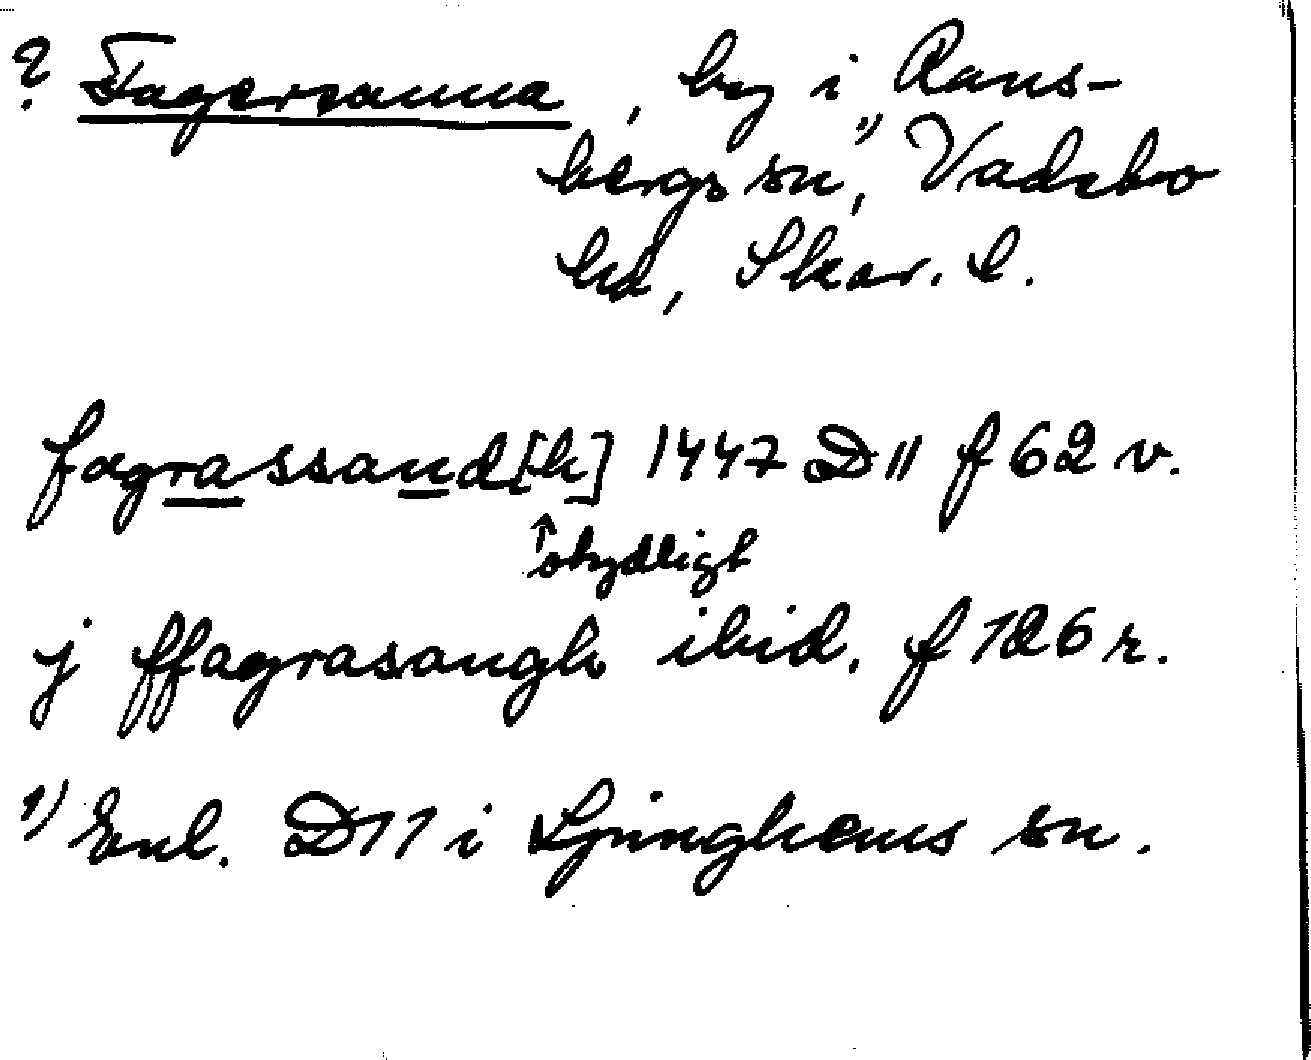 ? Fagersanna, by i Rans-
bergs sn¹⁾, Vadsbo
hd, Skar. l.
fagrassand[h] 1447 D11 f 62 v.
↑otydligt
j ffagrasangh ibid. f 126 r.
1) Enl. D11 i Ljunghems sn.